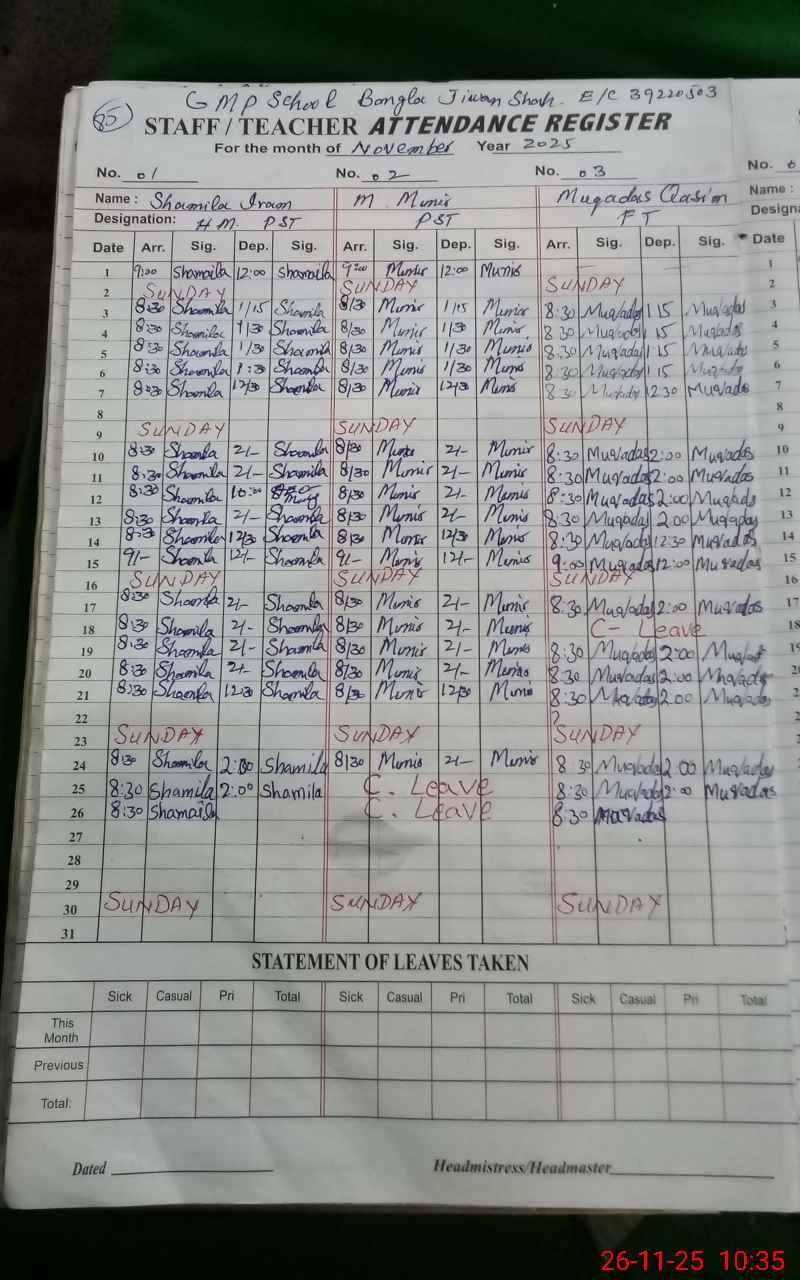 85 GMP School Bangla Jiwan Shah. E/C 39220503
STAFF / TEACHER ATTENDANCE REGISTER
For the month of November Year 2025
No. 01 No. 02 No. 03 No.
Name : Shamila Iram M. Munir Muqadas Qasim Name :
Designation: HM. PST PST FT
Date Arr. Sig. Dep. Sig. Arr. Sig. Dep. Sig. Arr. Sig. Dep. Sig. Date
1 9:00 Shamaila 12:00 Shamaila 9:00 Munir 12:00 Munir 1
2 SUNDAY SUNDAY SUNDAY 2
3 8:30 Shamila 1/15 Shamila 8/30 Munir 1/15 Munir 8:30 Muqadas 1 15 Muqadas 3
4 8:30 Shamila 1/30 Shamila 8/30 Munir 1/30 Munir 8 30 Muqadas 1 15 Muqadas 4
5 8:30 Shamila 1/30 Shamila 8/30 Munir 1/30 Munir 8:30 Muqadas 1:15 Muqadas 5
6 8:30 Shamila 1:30 Shamila 8/30 Munir 1/30 Munir 8:30 Muqadas 1:15 Muqadas 6
7 8:30 Shamila 12/30 Shamila 8/30 Munir 12/30 Munir 8:30 Muqadas 12:30 Muqadas 7
8 8
9 SUNDAY SUNDAY SUNDAY 9
10 8:30 Shamila 2/- Shamila 8/30 Munir 2/- Munir 8:30 Muqadas 2:00 Muqadas 10
11 8:30 Shamila 2/- Shamila 8/30 Munir 2/- Munir 8:30 Muqadas 2:00 Muqadas 11
12 8:30 Shamila 10:00 8/30 Munir 2/- Munir 8:30 Muqadas 2:00 Muqadas 12
13 8:30 Shamila 2/- Shamila 8/30 Munir 2/- Munir 8:30 Muqadas 2:00 Muqadas 13
14 8:30 Shamila 12/30 Shamila 8/30 Munir 12/30 Munir 8:30 Muqadas 12:30 Muqadas 14
15 9/- Shamila 12/- Shamila 9/- Munir 12/- Munir 9:00 Muqadas 12:00 Muqadas 15
16 SUNDAY SUNDAY SUNDAY 16
17 8:30 Shamila 2/- Shamila 8/30 Munir 2/- Munir 8:30 Muqadas 2:00 Muqadas 17
18 8:30 Shamila 2/- Shamila 8/30 Munir 2/- Munir C- Leave 18
19 8:30 Shamila 2/- Shamila 8/30 Munir 2/- Munir 8:30 Muqadas 2:00 Muqadas
20 8:30 Shamila 2/- Shamila 8/30 Munir 2/- Munir 8:30 Muqadas 2:00 Muqadas
21 8:30 Shamila 12:30 Shamila 8/30 Munir 12/30 Munir 8:30 Muqadas 2:00 Muqadas
22
23 SUNDAY SUNDAY SUNDAY
24 8:30 Shamila 2:00 Shamila 8/30 Munir 2/- Munir 8 30 Muqadas 2 00 Muqadas
25 8:30 Shamila 2:00 Shamila C. Leave 8:30 Muqadas 2:00 Muqadas
26 8:30 Shamaila C. Leave 8:30 Muqadas
27
28
29
30 SUNDAY SUNDAY SUNDAY
31
STATEMENT OF LEAVES TAKEN
Sick Casual Pri Total Sick Casual Pri Total Sick Casual Pri Total
This Month
Previous
Total:
Dated Headmistress/Headmaster
26-11-25 10:35